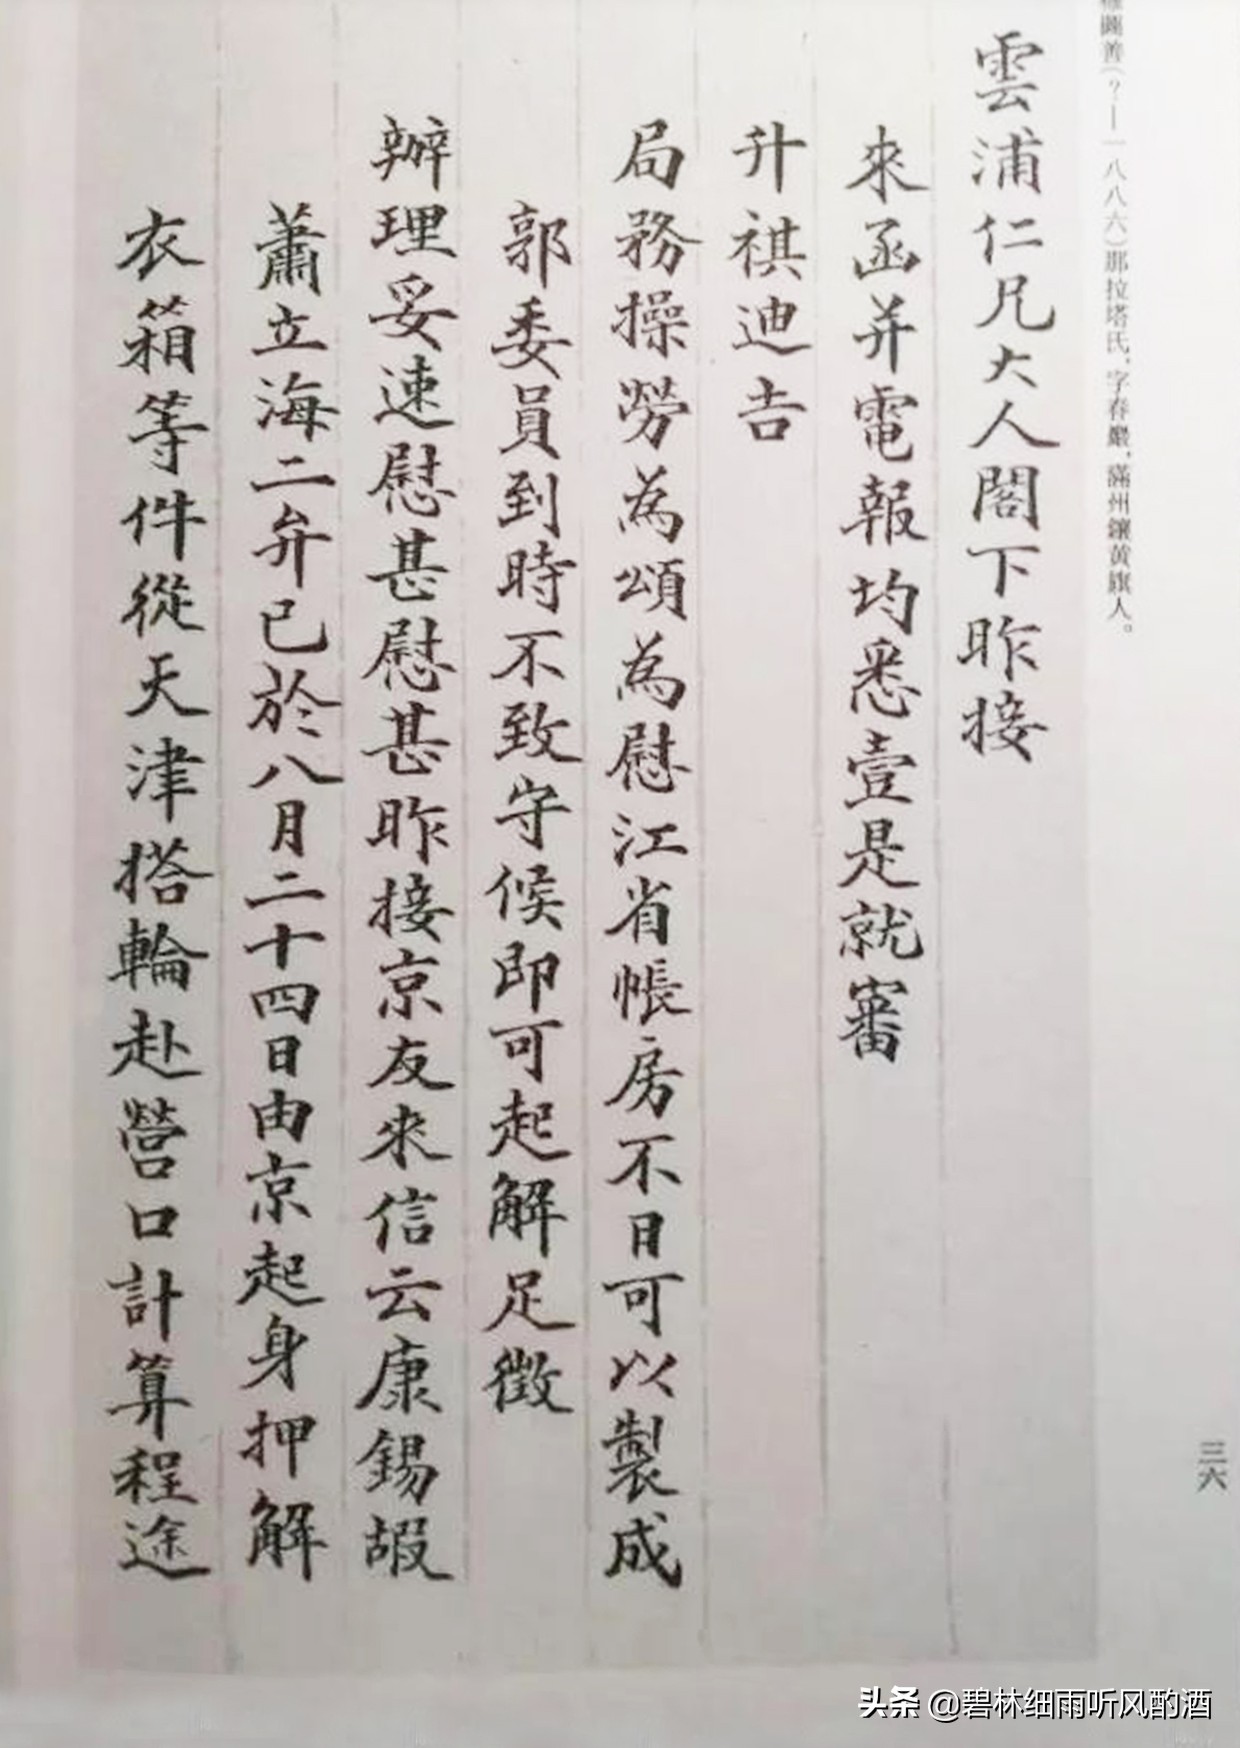 雍圖善（？—一八八六）那拉塔氏，字春巖，滿州鑲黃旗人。
雲浦仁兄大人閣下昨接
來函并電報均悉壹是就審
升祺迪吉
局務操勞為頌為慰江省帳房不日可以製成
郭委員到時不致守候即可起解足徵
辦理妥速慰甚慰甚昨接京友來信云康錫嘏
蕭立海二弁已於八月二十四日由京起身押解
衣箱等件從天津搭輪赴營口計算程途
三六
头条 @碧林细雨听风酌酒